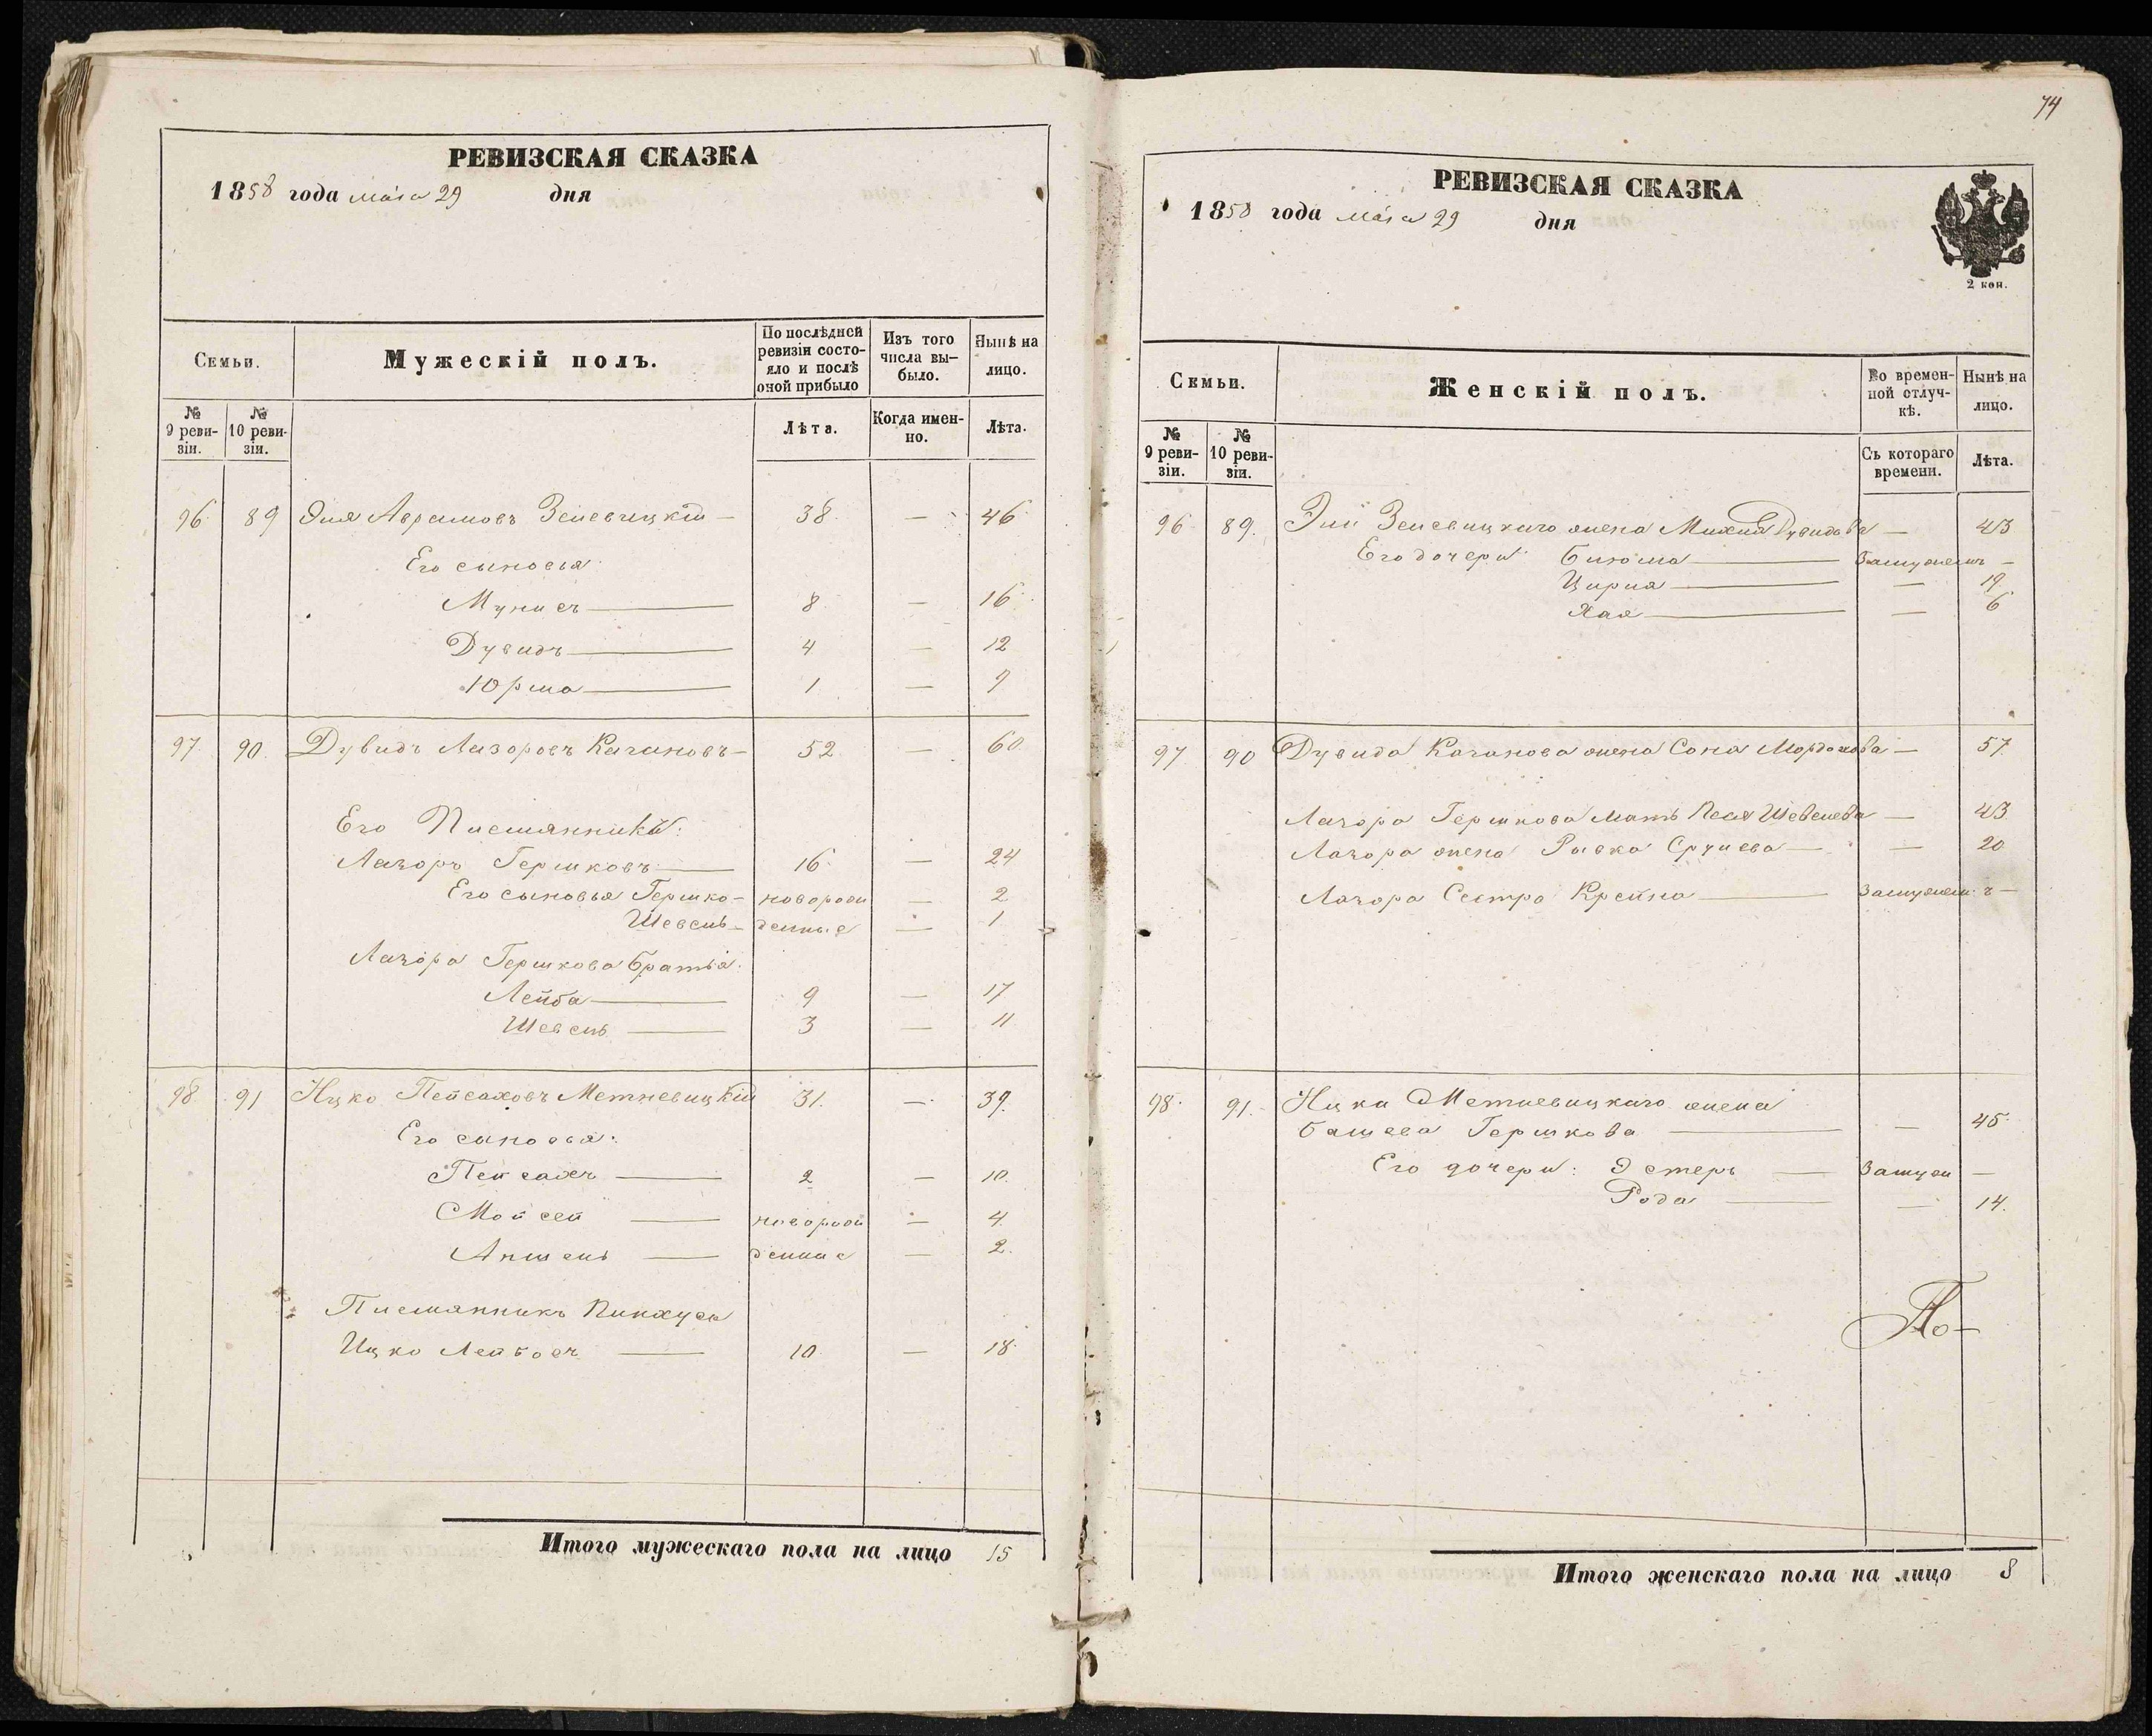 РЕВИЗСКАЯ СКАЗКА
1858 года мая 29 дня
Семьи.
Мужескій полъ.
По послѣдней ревизіи состояло и послѣ оной прибыло
Изъ того числа вы-было.
Нынѣ на лицо.
№ 9 реви-зіи.
№ 10 реви-зіи.
Лѣта.
Когда имен-но.
Лѣта.
96 89 Эля Абрамовъ 38 — 46
Его сыновья
8 — 16
Дувидъ 4 — 12
1 — 9
97 90 Дувидъ Лазоровъ Кагановъ 52 — 60
Его Племянники:
Лазоръ Гершковъ 16 — 24
Его сыновья Гершко новорож — 2
Шевель денные — 1
Лазора Гершкова братья
Лейба 9 — 17
Шевель 3 — 11
98 91 Ицко Пейсаховъ 31. — 39.
Его сыновья:
Пейсахъ 2 — 10.
Мойсей новорож — 4.
Аншель денные — 2.
Племянникъ Пинхуса
Ицко Лейбовъ 10 — 18.
Итого мужескаго пола на лицо 15
74
РЕВИЗСКАЯ СКАЗКА
1858 года мая 29 дня
2 коп.
Семьи.
Женскій полъ.
Во времен-ной отлуч-кѣ.
Нынѣ на лицо.
№ 9 реви-зіи.
№ 10 реви-зіи.
Съ котораго времени.
Лѣта.
96 89. жена Дувидова — 43
Его дочери Замужемъ —
Цирля — 19.
Хая — 6
97 90 Дувида Каганова жена Сона Мордохова — 57
Лазора Гершкова мать Песя Шевелева — 43
Лазора жена Ривка Срулева — 20
Лазора Сестра Крейна Замужемъ —
98. 91. Ицки жена
Башева Гершкова — 45
Его дочери: Эстеръ Замуж —
Рода — 14.
По-
Итого женскаго пола на лицо 8